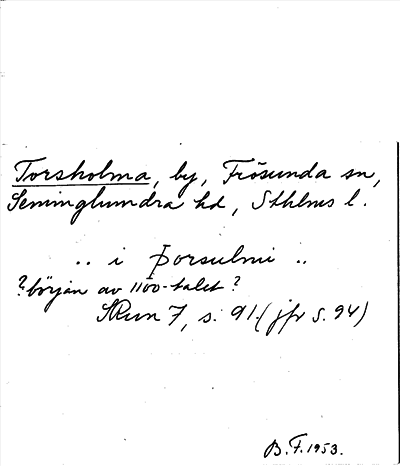 Torsholma, by, Frösunda sn,
Seminghundra hd, Sthlms l.
.. i Þorsulmi ..
? början av 1100-talet ?
SRun 7, s. 91. (jfr s. 94)
B. F. 1953.